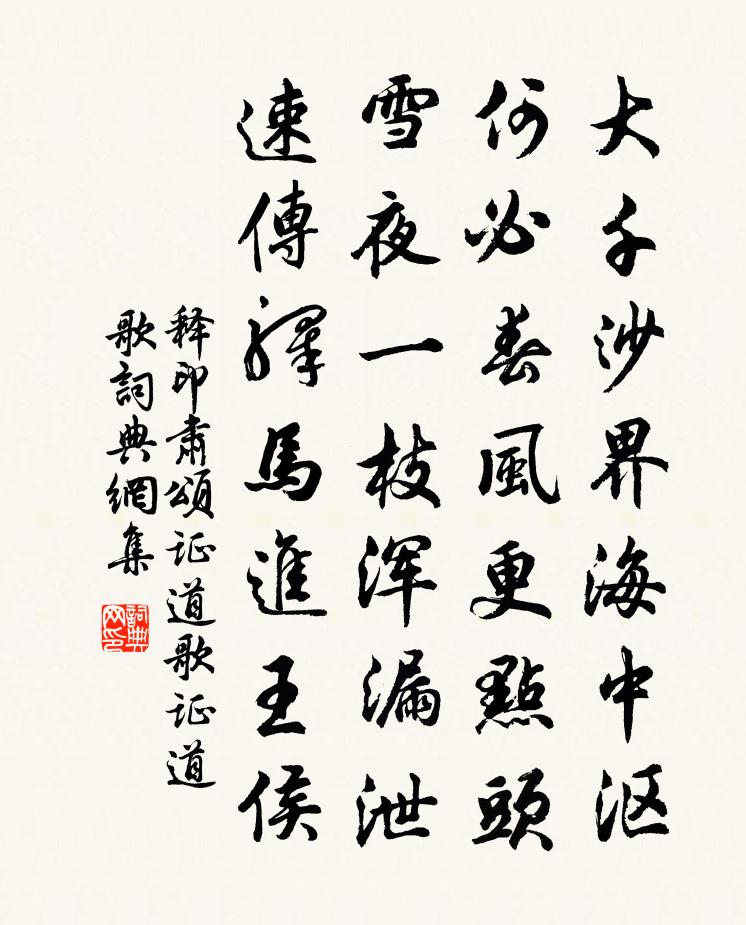 大千沙界海中沤
何必春風更點頭
雪夜一枝浑漏泄
速傳驛馬進王侯
释印肅頌证道歌证道
歌詞典網集
詞典网印